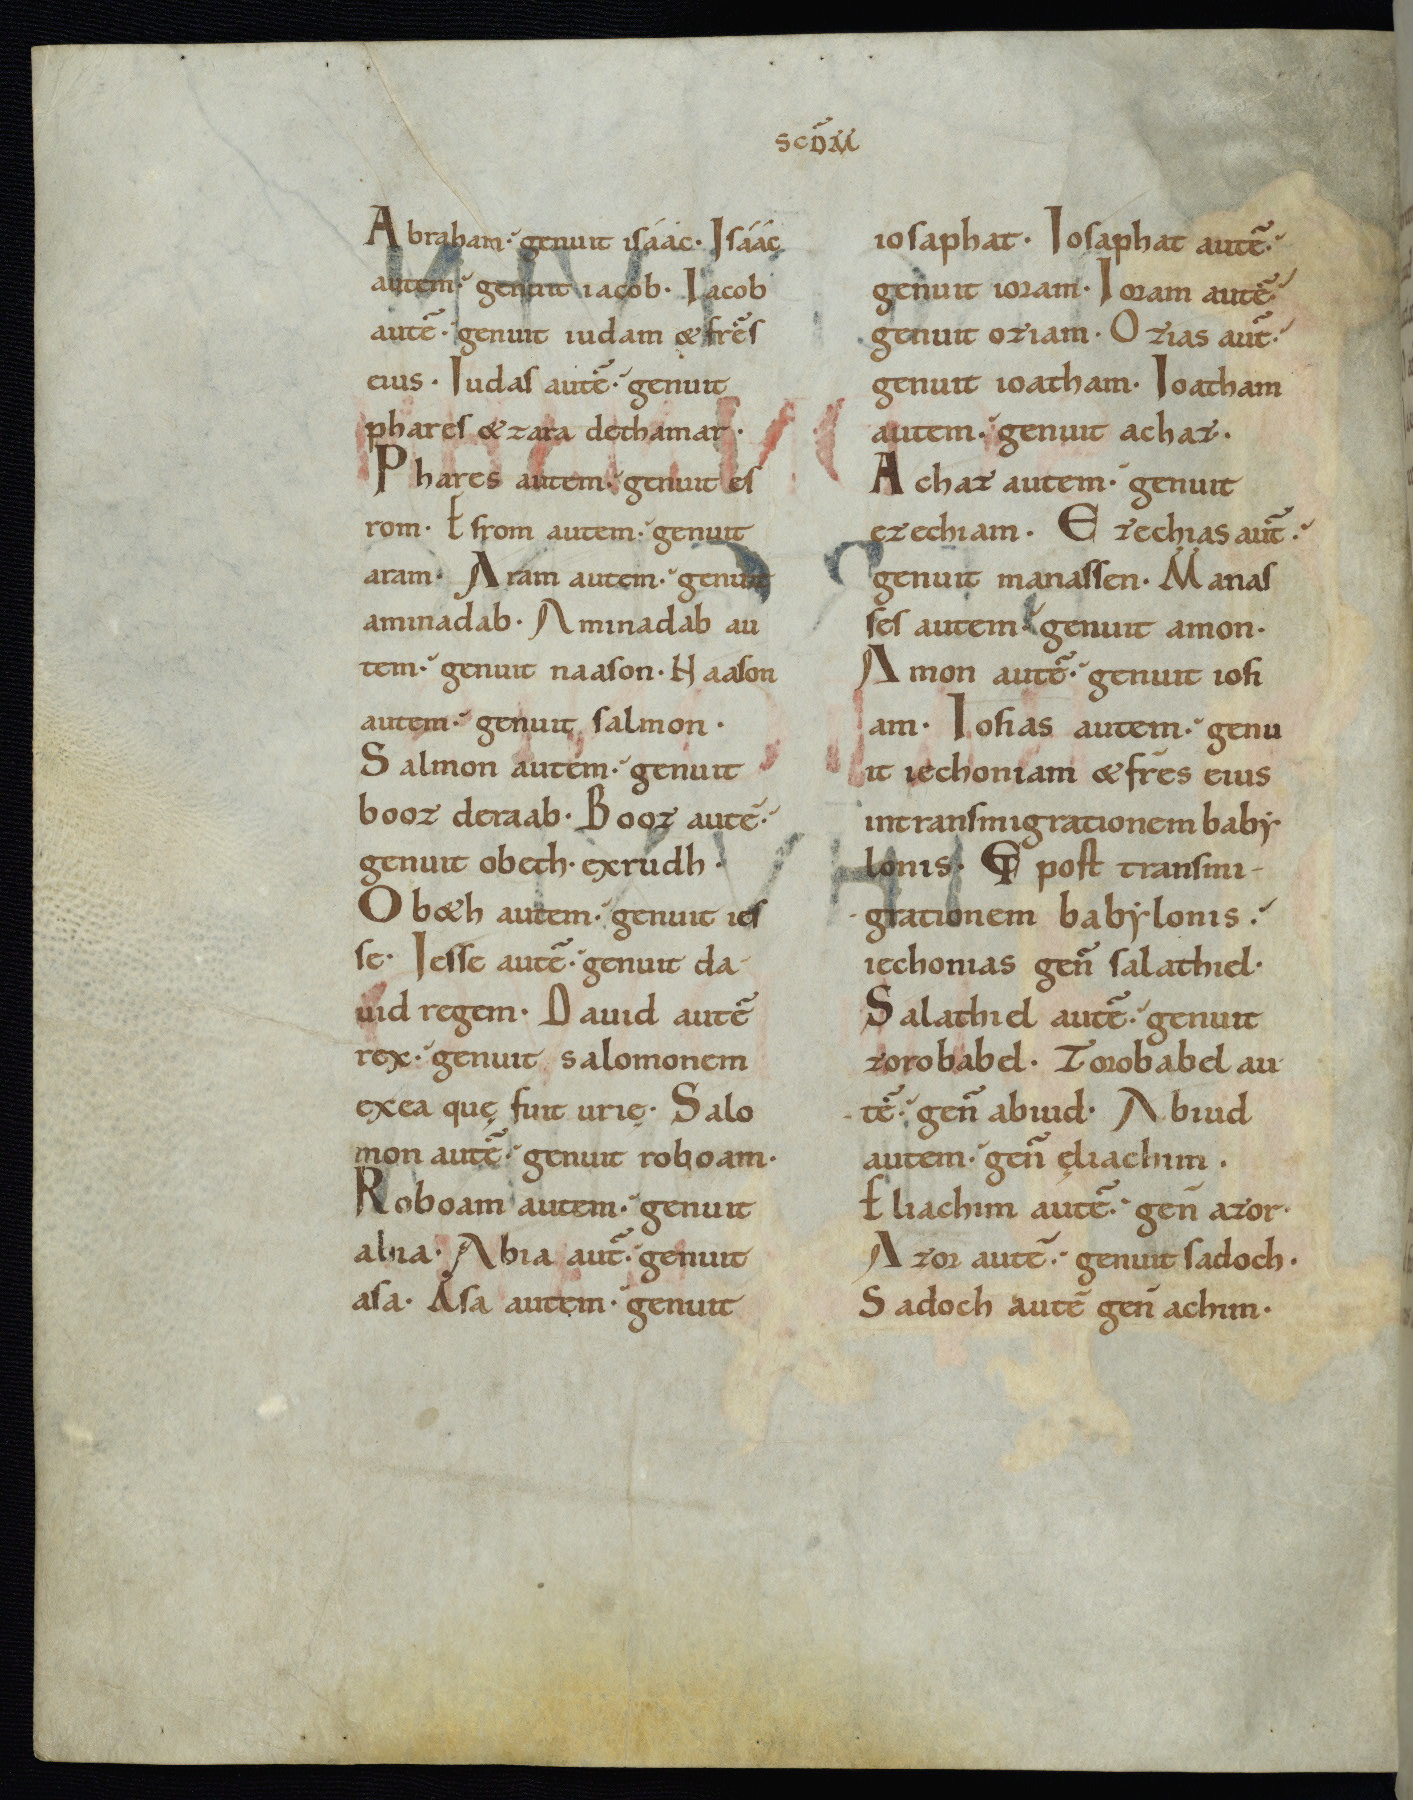 scdm̃
Abraham· genuit isáác· Isáác
autem· genuit iacob· Iacob
autẽ· genuit iudam & fr̃es
eius· Iudas autẽ· genuit
phares & zara dethamar·
Phares autem· genuit es
rom· Esrom autem· genuit
aram· Aram autem· genuit
aminadab· Aminadab au
tem· genuit naason· Naason
autem· genuit salmon·
Salmon autem· genuit
booz deraab· Booz autẽ·
genuit obeth· exrudh·
Ob&h autem· genuit ies
se· Iesse autẽ· genuit da
uid regem· Dauid autẽ
rex· genuit salomonem
exea quę fuit urię· Salo
mon autẽ· genuit roboam·
Roboam autem· genuit
abia· Abia aut̃· genuit
asa· Asa autem· genuit
iosaphat· Iosaphat autẽ·
genuit ioram· Ioram autẽ·
genuit oziam· Ozias aut̃·
genuit ioatham· Ioatham
autem· genuit achaz·
Achaz autem· genuit
ezechiam· Ezechias aut̃·
genuit manassen· Manas
ses autem· genuit amon·
Amon autẽ· genuit iosi
am· Iosias autem· genu
it iechoniam & fr̃es eius
intransmigrationem baby
lonis· ET post transmi-
grationem babylonis·
iechonias geñ salathiel·
Salathiel autẽ· genuit
zorobabel· Zorobabel au
tẽ· geñ abiud· Abiud
autem· geñ ęliachim·
Eliachim autẽ· geñ azor·
Azor autẽ· genuit sadoch·
Sadoch autẽ geñ achim·